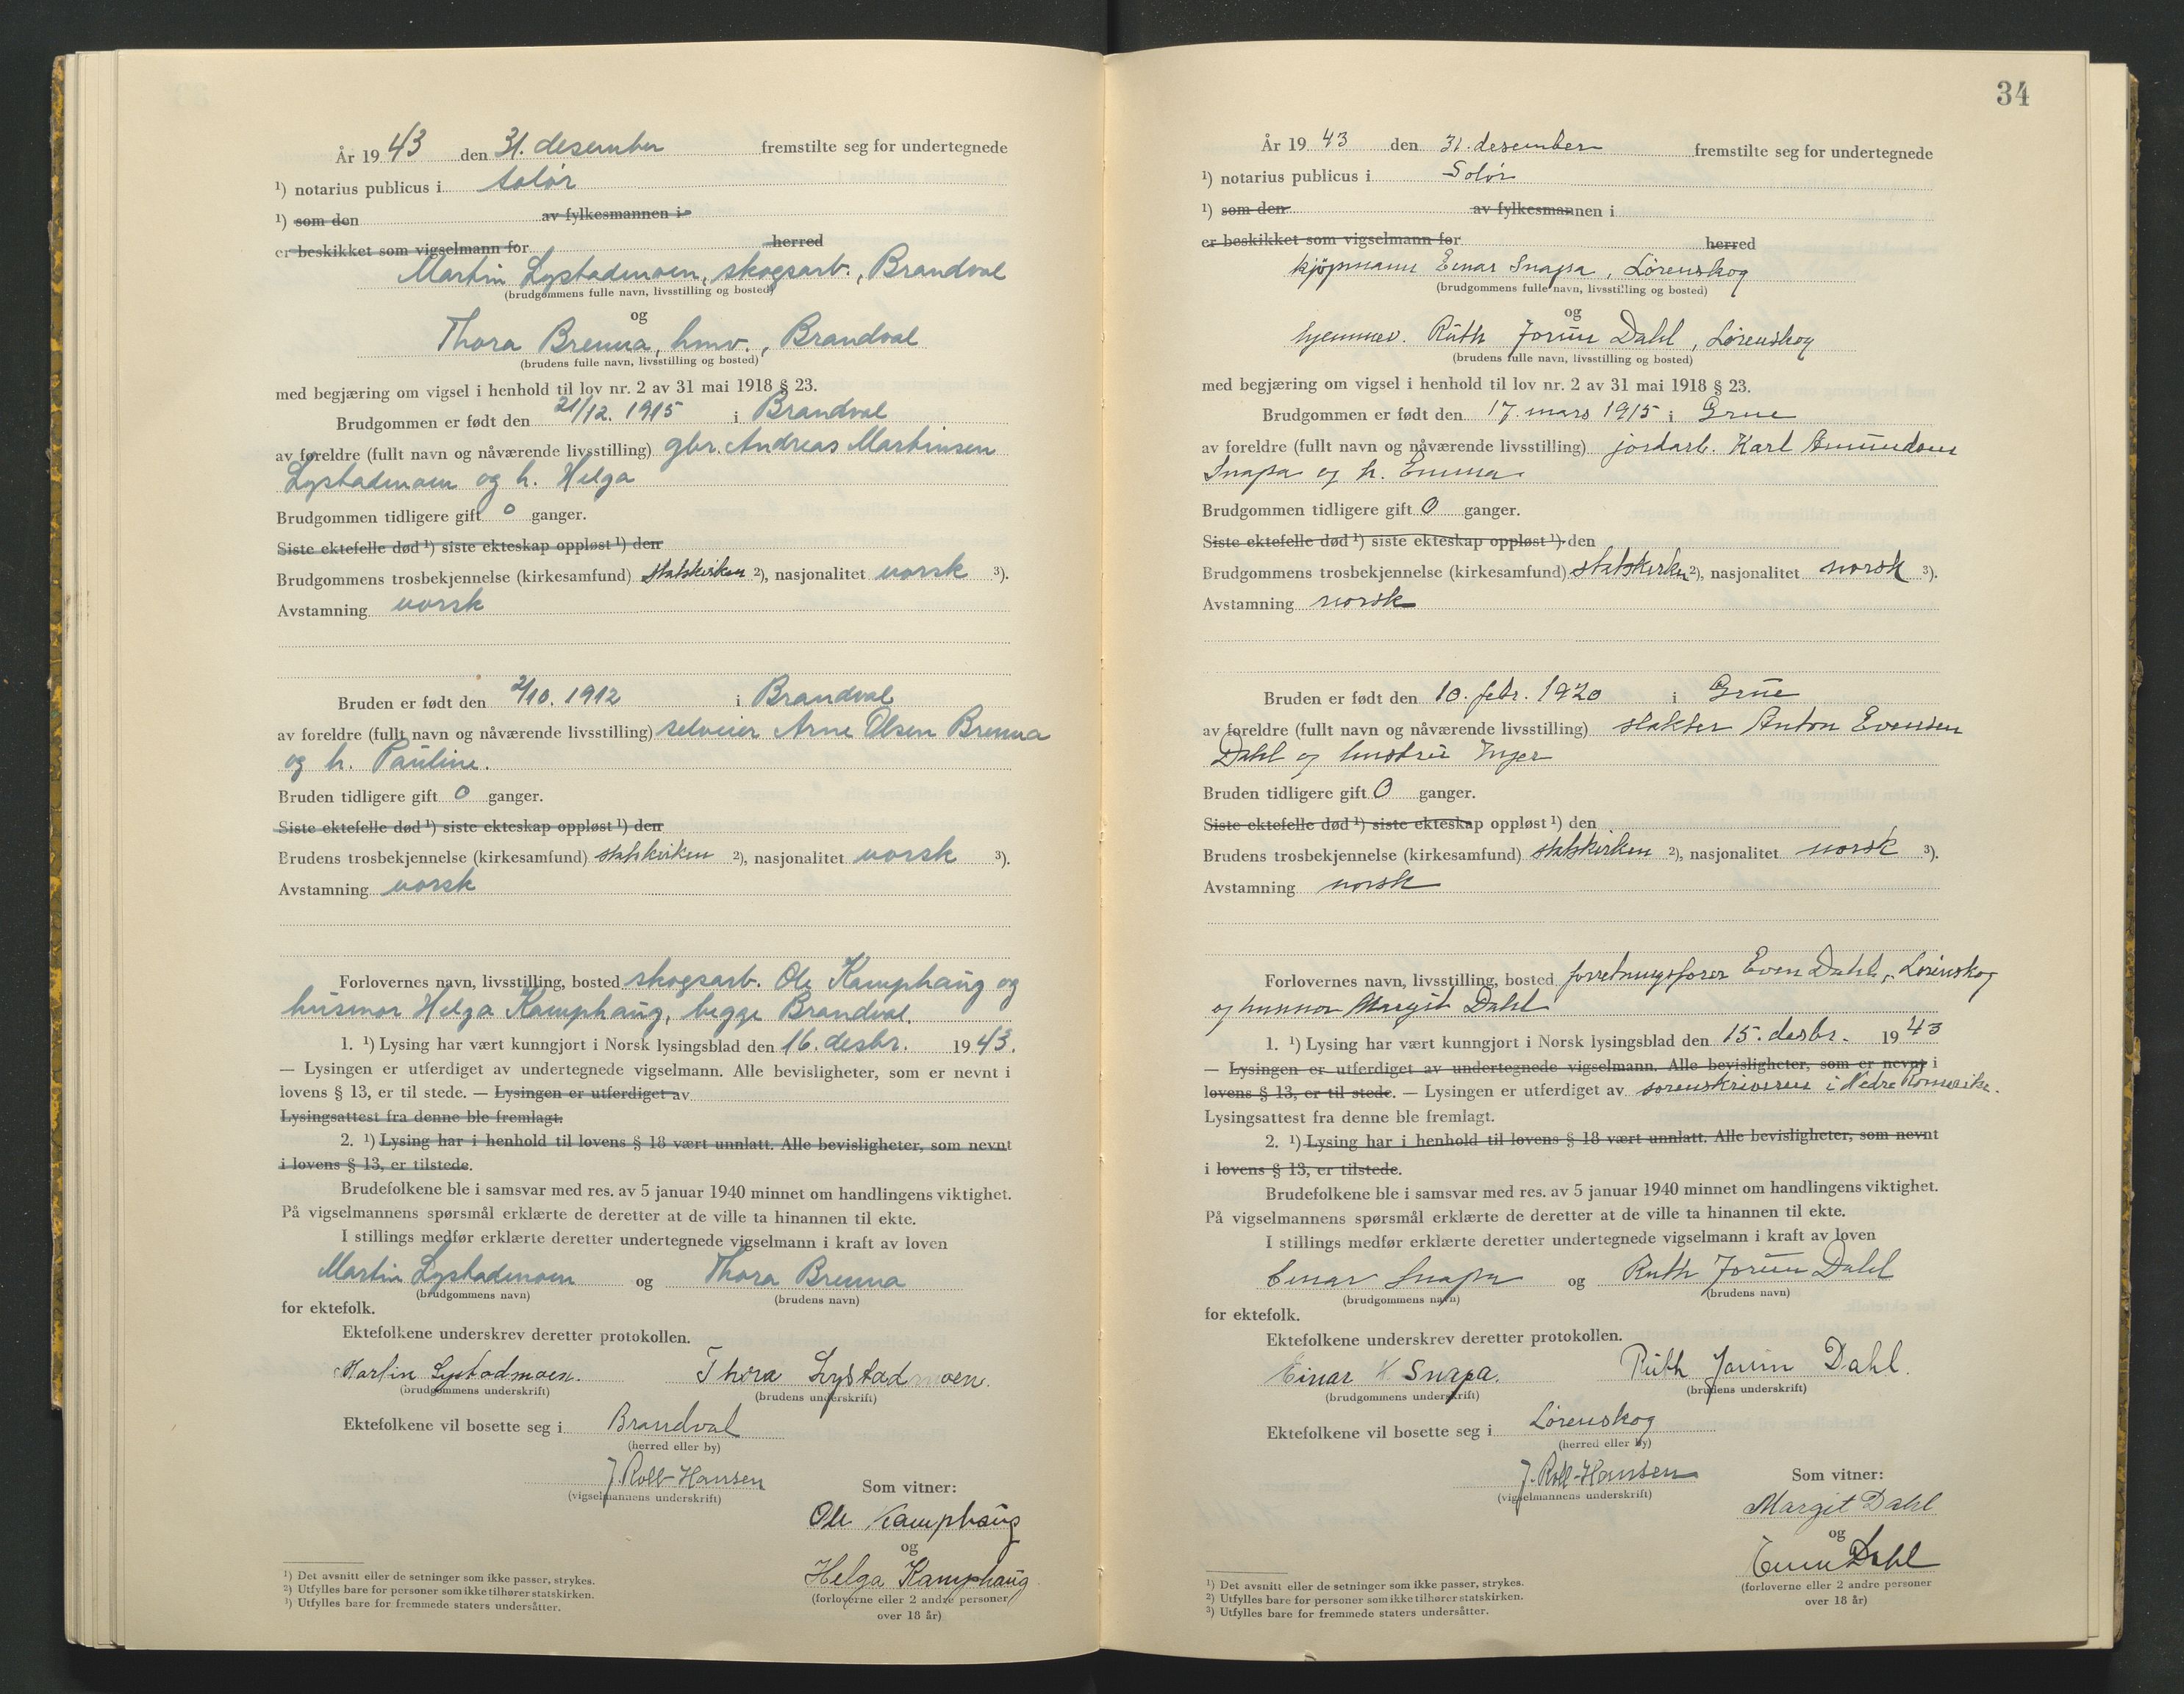 År 19 43 den 31. desember fremstilte seg for undertegnede
¹) notarius publicus i Solør
¹) som den av fylkesmannen i
er beskikket som vigselmann for herred
Martin Lystadmoen, skogsarb., Brandval
(brudgommens fulle navn, livsstilling og bosted)
og
Thora Brenna, hmv., Brandval
(brudens fulle navn, livsstilling og bosted)
med begjæring om vigsel i henhold til lov nr. 2 av 31 mai 1918 § 23.
Brudgommen er født den 21/12. 1915 i Brandval
av foreldre (fullt navn og nåværende livsstilling) gbr. Andreas Martinsen
Lystadmoen og h. Helga
Brudgommen tidligere gift 0 ganger.
Siste ektefelle død ¹) siste ekteskap oppløst ¹) den
Brudgommens trosbekjennelse (kirkesamfund) statskirken ²), nasjonalitet norsk ³).
Avstamning norsk
Bruden er født den 2/10. 1912 i Brandval
av foreldre (fullt navn og nåværende livsstilling) selveier Arne Olsen Brenna
og h. Pauline.
Bruden tidligere gift 0 ganger.
Siste ektefelle død ¹) siste ekteskap oppløst ¹) den
Brudens trosbekjennelse (kirkesamfund) statskirken ²), nasjonalitet norsk ³).
Avstamning norsk
Forlovernes navn, livsstilling, bosted skogsarb. Ole Kamphaug og
husmor Helga Kamphaug, begge Brandval.
1. ¹) Lysing har vært kunngjort i Norsk lysingsblad den 16. desbr. 19 43.
— Lysingen er utferdiget av undertegnede vigselmann. Alle bevisligheter, som er nevnt i
lovens § 13, er til stede. — Lysingen er utferdiget av
Lysingsattest fra denne ble fremlagt.
2. ¹) Lysing har i henhold til lovens § 18 vært unnlatt. Alle bevisligheter, som nevnt
i lovens § 13, er tilstede.
Brudefolkene ble i samsvar med res. av 5 januar 1940 minnet om handlingens viktighet.
På vigselmannens spørsmål erklærte de deretter at de ville ta hinannen til ekte.
I stillings medfør erklærte deretter undertegnede vigselmann i kraft av loven
Martin Lystadmoen og Thora Brenna
(brudgommens navn) (brudens navn)
for ektefolk.
Ektefolkene underskrev deretter protokollen.
Martin Lystadmoen. Thora Lystadmoen.
(brudgommens underskrift) (brudens underskrift)
Ektefolkene vil bosette seg i Brandval
(herred eller by)
J. Roll-Hansen
(vigselmannens underskrift)
Som vitner:
Ole Kamphaug
og
Helga Kamphaug
(forloverne eller 2 andre personer
over 18 år)
¹) Det avsnitt eller de setninger som ikke passer, strykes.
²) Utfylles bare for personer som ikke tilhører statskirken.
³) Utfylles bare for fremmede staters undersåtter.
34
År 19 43 den 31. desember fremstilte seg for undertegnede
¹) notarius publicus i Solør
¹) som den av fylkesmannen i
er beskikket som vigselmann for herred
kjøpmann Einar Snapa, Lørenskog
(brudgommens fulle navn, livsstilling og bosted)
og
hjemmev. Ruth Jorun Dahl, Lørenskog
(brudens fulle navn, livsstilling og bosted)
med begjæring om vigsel i henhold til lov nr. 2 av 31 mai 1918 § 23.
Brudgommen er født den 17. mars 1915 i Grue
av foreldre (fullt navn og nåværende livsstilling) jordarb. Karl Amundsen
Snapa og h. Emma.
Brudgommen tidligere gift 0 ganger.
Siste ektefelle død ¹) siste ekteskap oppløst ¹) den
Brudgommens trosbekjennelse (kirkesamfund) statskirken ²), nasjonalitet norsk ³).
Avstamning norsk
Bruden er født den 10. febr. 1920 i Grue
av foreldre (fullt navn og nåværende livsstilling) slakter Anton Evensen
Dahl og hustru Inger
Bruden tidligere gift 0 ganger.
Siste ektefelle død ¹) siste ekteskap oppløst ¹) den
Brudens trosbekjennelse (kirkesamfund) statskirken ²), nasjonalitet norsk ³).
Avstamning norsk
Forlovernes navn, livsstilling, bosted forretningsfører Even Dahl, Lørenskog
og husmor Margit Dahl
1. ¹) Lysing har vært kunngjort i Norsk lysingsblad den 15. desbr. 19 43
— Lysingen er utferdiget av undertegnede vigselmann. Alle bevisligheter, som er nevnt i
lovens § 13, er til stede. — Lysingen er utferdiget av sorenskriveren i Nedre Romerike.
Lysingsattest fra denne ble fremlagt.
2. ¹) Lysing har i henhold til lovens § 18 vært unnlatt. Alle bevisligheter, som nevnt
i lovens § 13, er tilstede.
Brudefolkene ble i samsvar med res. av 5 januar 1940 minnet om handlingens viktighet.
På vigselmannens spørsmål erklærte de deretter at de ville ta hinannen til ekte.
I stillings medfør erklærte deretter undertegnede vigselmann i kraft av loven
Einar Snapa og Ruth Jorun Dahl
(brudgommens navn) (brudens navn)
for ektefolk.
Ektefolkene underskrev deretter protokollen.
Einar K Snapa. Ruth Jorun Dahl.
(brudgommens underskrift) (brudens underskrift)
Ektefolkene vil bosette seg i Lørenskog
(herred eller by)
J. Roll-Hansen
(vigselmannens underskrift)
Som vitner:
Margit Dahl
og
Even Dahl
(forloverne eller 2 andre personer
over 18 år)
¹) Det avsnitt eller de setninger som ikke passer, strykes.
²) Utfylles bare for personer som ikke tilhører statskirken.
³) Utfylles bare for fremmede staters undersåtter.